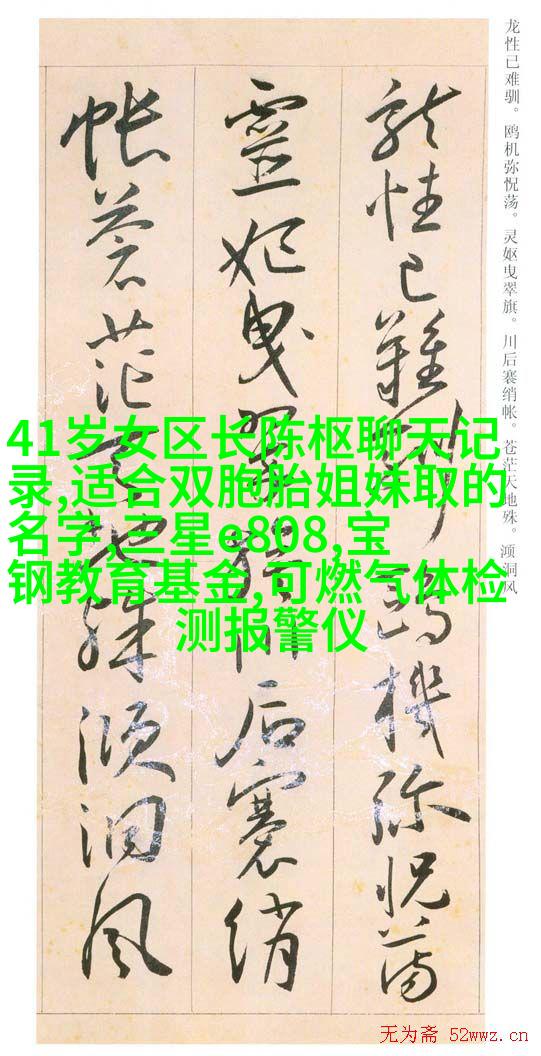 龙性已难驯。鸥机弥怳荡。灵妪曳翠旗。川后褰绡帐。苍茫天地殊。澒洞风
龍性已難馴鷗機弥怳蕩
靈妪曳翠旗川后褰綃
帳蒼茫天地殊澒洞風
41岁女区长陈枢聊天记
录,适合双胞胎姐妹取的
名字,三星e808,宝
钢教育基金,可燃气体检
测报警仪
无为斋 52wwz.cn